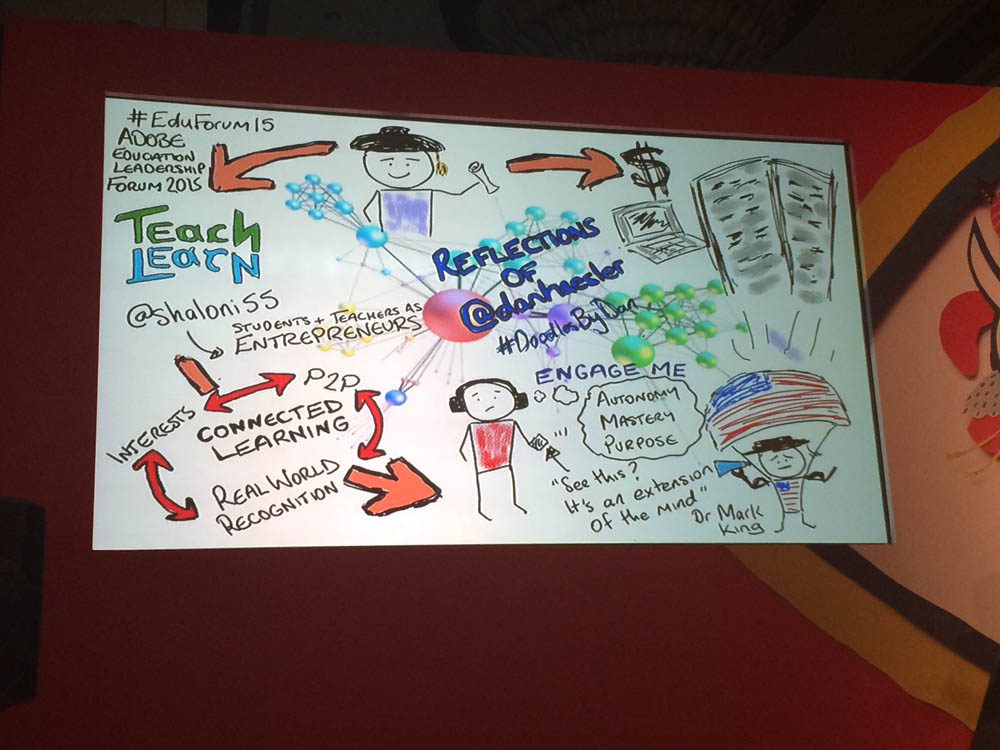 #EduForum15
ADOBE
EDUCATION
LEADERSHIP
FORUM 2015
TEACH
LEARN
@shaloni55
STUDENTS + TEACHERS AS
ENTREPRENEURS
$
REFLECTIONS
OF
@danhaesler
#DoodlesByDan
INTERESTS
P2P
CONNECTED
LEARNING
REAL WORLD
RECOGNITION
ENGAGE ME
AUTONOMY
MASTERY
PURPOSE
"See this?
It's an extension
of the mind"
Dr Mark
King